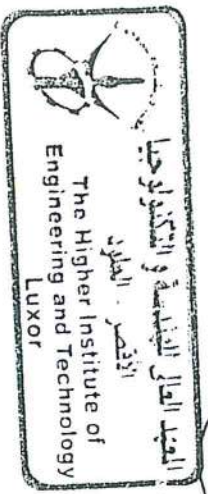 المعهد العالي للهندسة والتكنولوجيا
الأقصر - الطود
The Higher Institute of
Engineering and Technology
Luxor